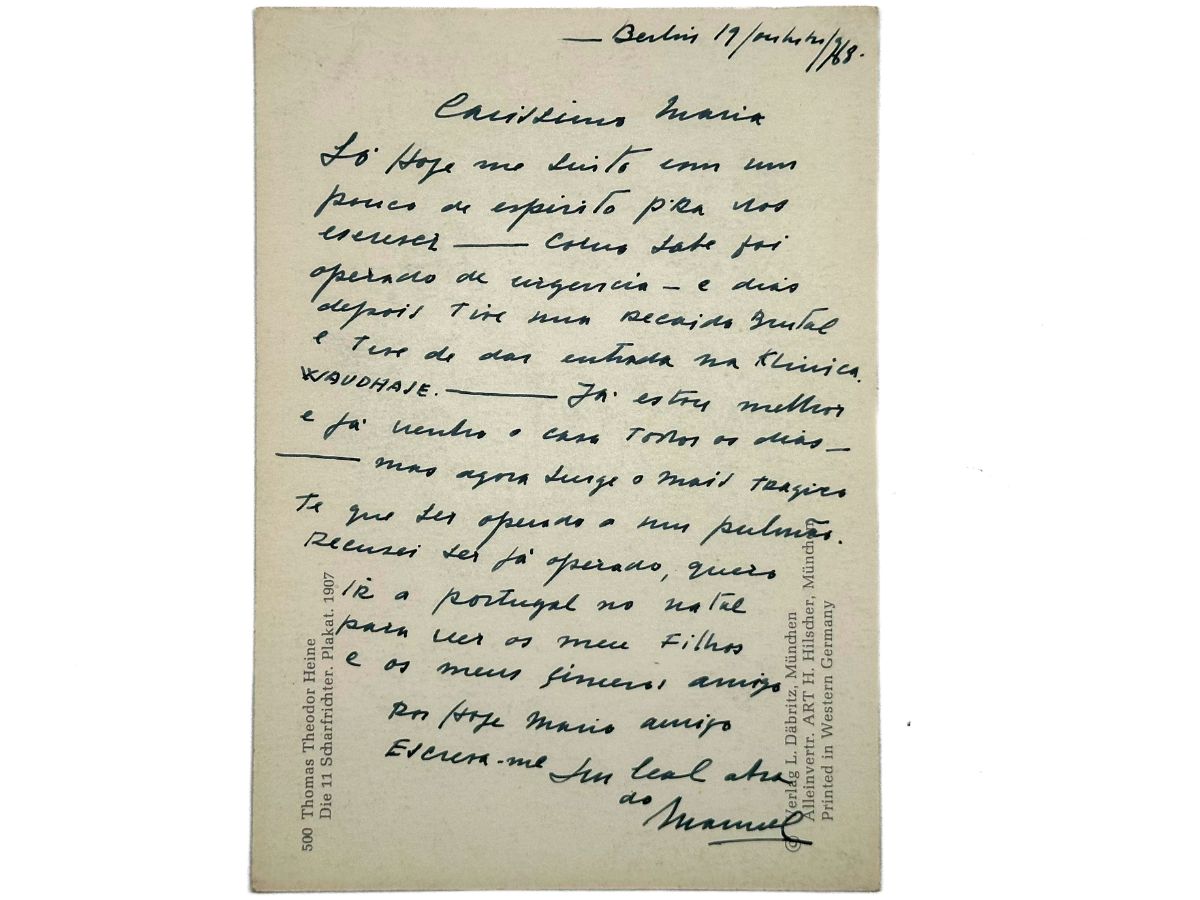 — Berlin 19/outubro/968.
Carissimo Maria
Só Hoje me sinto com um
pouco de espirito p'Ra vos
escrever —— Como sabe foi
operado de urgencia — e dias
depois Tive uma Recaida Brutal
e Tive de dar entrada na Klinica.
WAUDHASE. —— Já estou melhor
e já venho a casa Todos os dias —
—— mas agora surge o mais tragico
Te que ser operado a um pulmão.
Recusei ser já operado, quero
IR a portugal no natal
para ver os meu Filhos
e os meus sinceros amigo
Por Hoje Mario amigo
Escreva-me Um leal abra
do
Manuel
500 Thomas Theodor Heine
Die 11 Scharfrichter. Plakat. 1907
© Verlag L. Däbritz, München
Alleinvertr. ART H. Hilscher, München
Printed in Western Germany